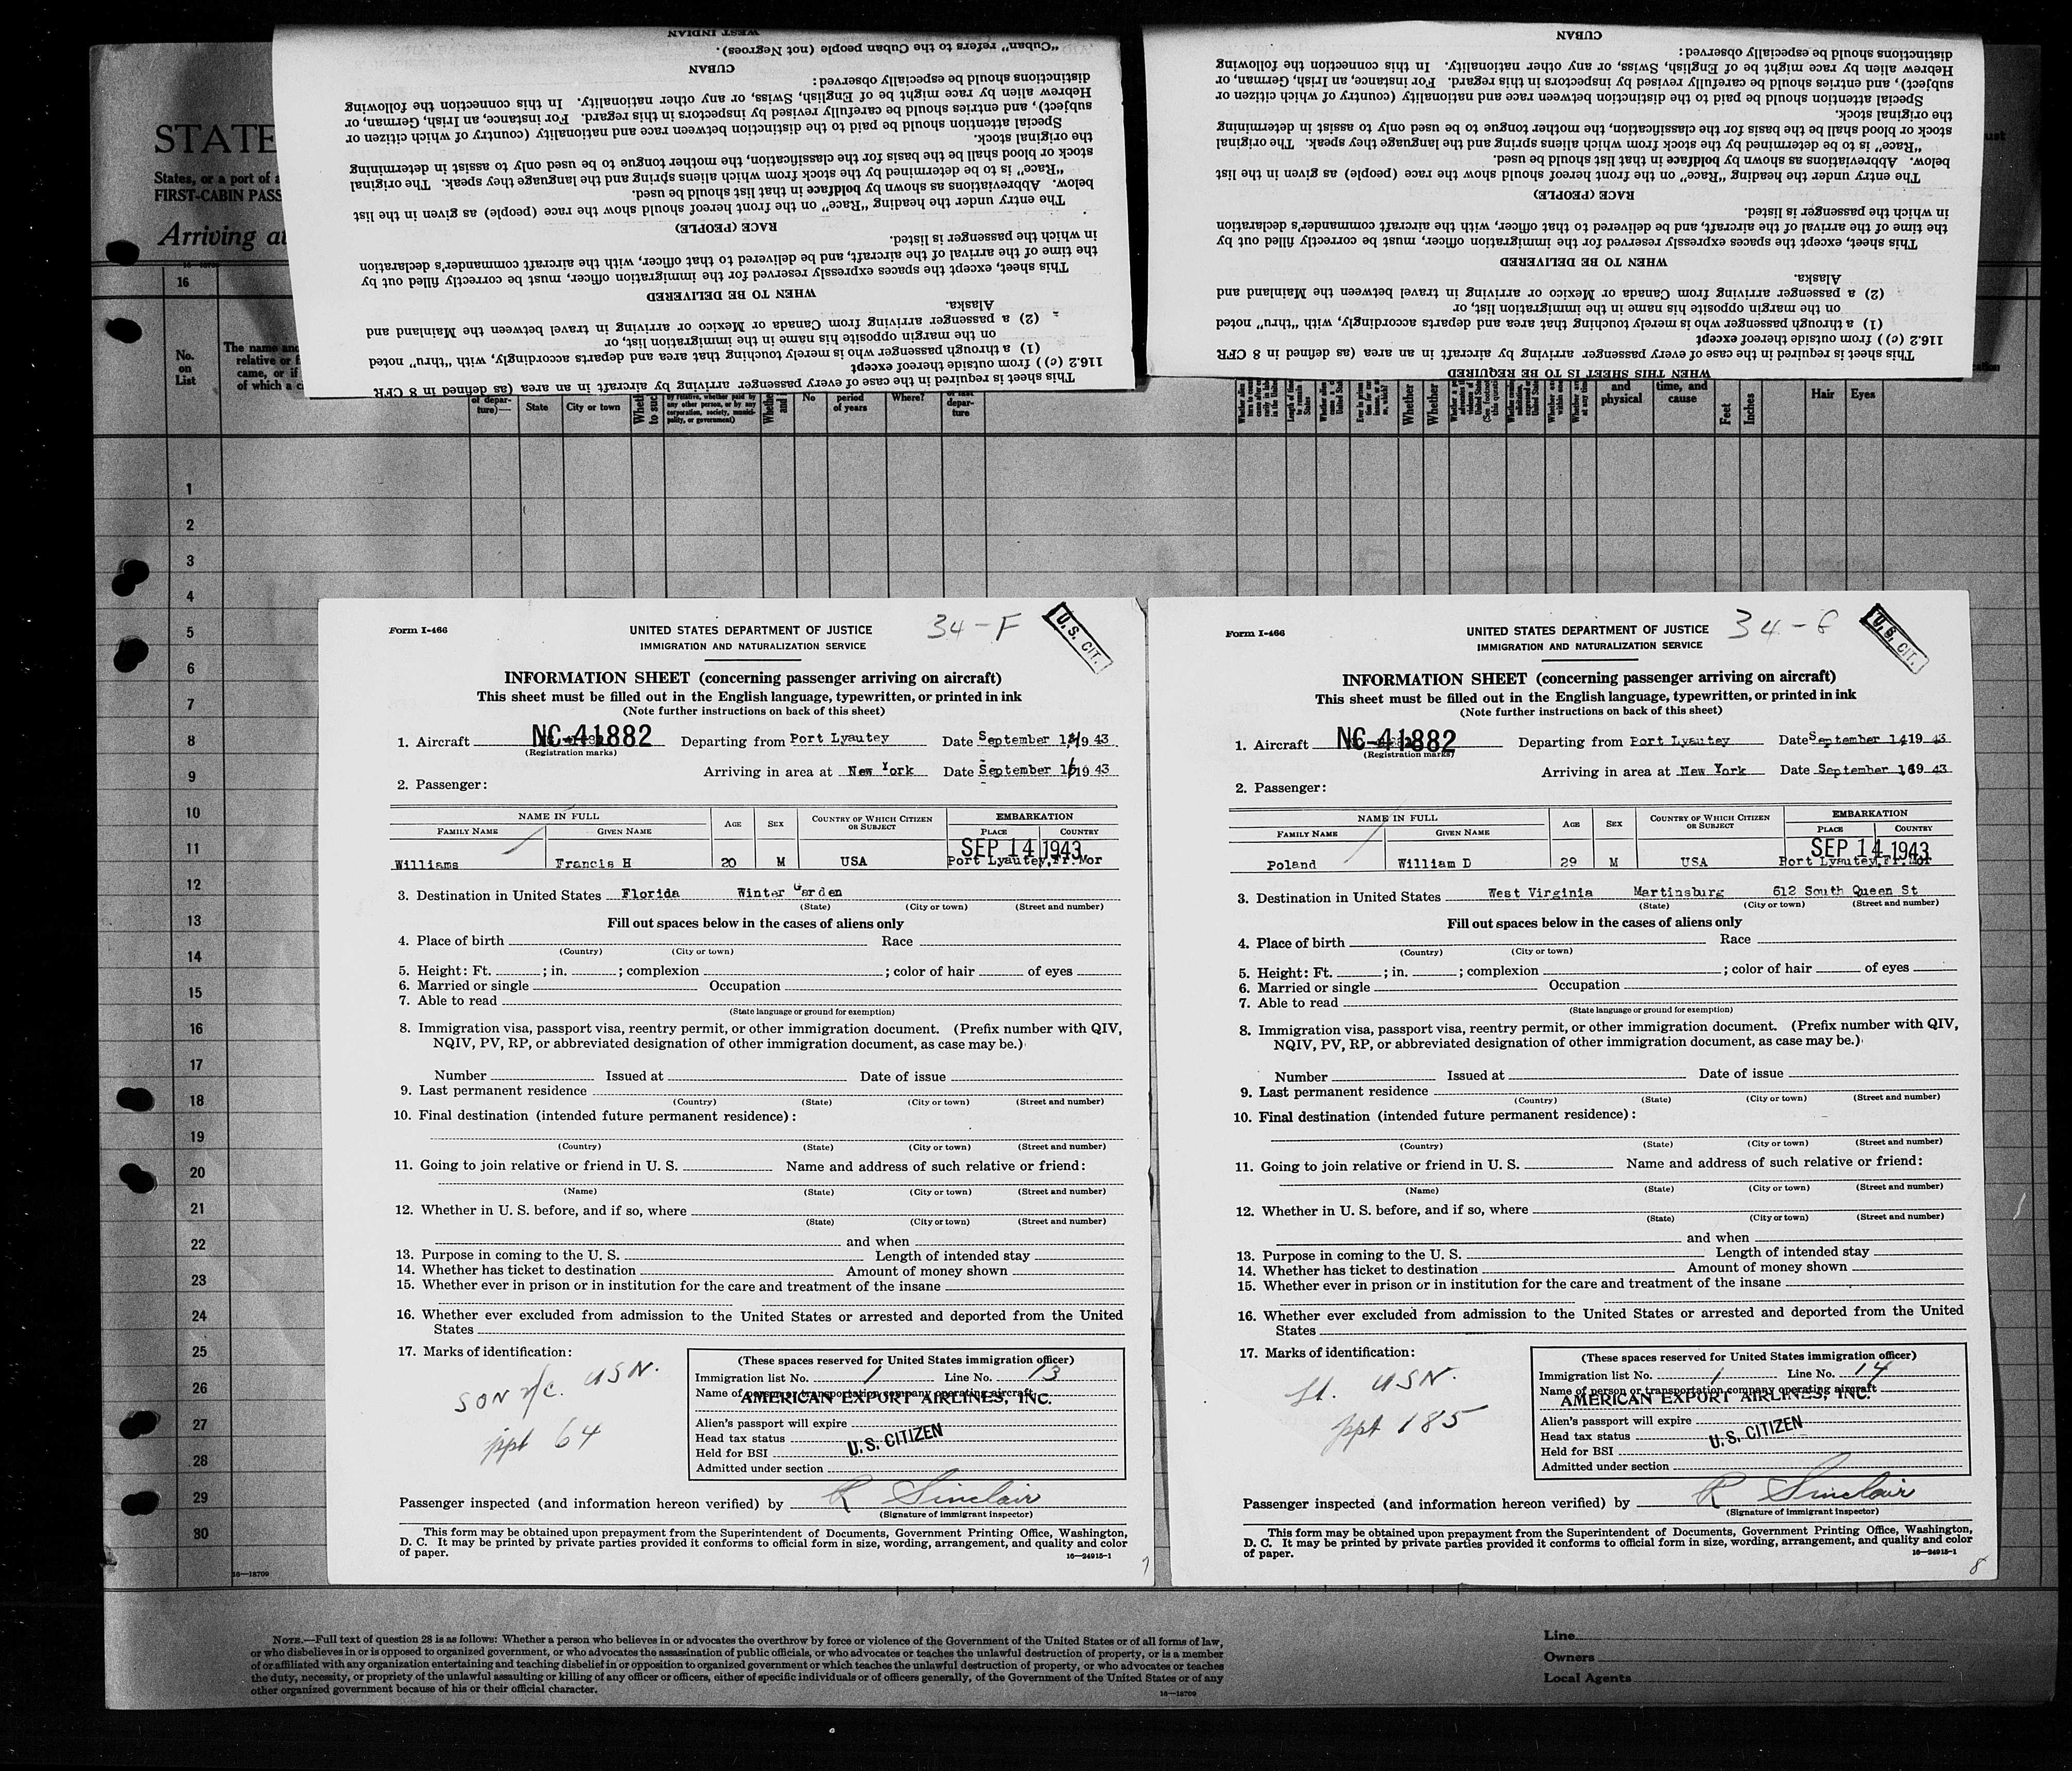 STATE
States, or a port of a
FIRST-CABIN PASS
Arriving at
16
No.
on
List
The name and
relative or f
came, or if
of which a c
of depar-
ture)—
State
City or town
No
period
of years
Where?
depar-
ture
and
physical
time, and
cause
Feet
Inches
Hair
Eyes
1
2
3
4
5
6
7
8
9
10
11
12
13
14
15
16
17
18
19
20
21
22
23
24
25
26
27
28
29
30
16—18709
WEST INDIAN
"Cuban" refers to the Cuban people (not Negroes).
CUBAN
distinctions should be especially observed:
Hebrew alien by race might be of English, Swiss, or any other nationality. In this connection the following
subject), and entries should be carefully revised by inspectors in this regard. For instance, an Irish, German, or
Special attention should be paid to the distinction between race and nationality (country of which citizen or
the original stock.
stock or blood shall be the basis for the classification, the mother tongue to be used only to assist in determining
"Race" is to be determined by the stock from which aliens spring and the language they speak. The original
below. Abbreviations as shown by boldface in that list should be used.
The entry under the heading "Race" on the front hereof should show the race (people) as given in the list
RACE (PEOPLE)
in which the passenger is listed.
the time of the arrival of the aircraft, and be delivered to that officer, with the aircraft commander's declaration
This sheet, except the spaces expressly reserved for the immigration officer, must be correctly filled out by
WHEN TO BE DELIVERED
Alaska.
(2) a passenger arriving from Canada or Mexico or arriving in travel between the Mainland and
on the margin opposite his name in the immigration list, or
(1) a through passenger who is merely touching that area and departs accordingly, with "thru" noted
116.2 (c)) from outside thereof except
This sheet is required in the case of every passenger arriving by aircraft in an area (as defined in 8 CFR
CUBAN
distinctions should be especially observed:
Hebrew alien by race might be of English, Swiss, or any other nationality. In this connection the following
subject), and entries should be carefully revised by inspectors in this regard. For instance, an Irish, German, or
Special attention should be paid to the distinction between race and nationality (country of which citizen or
the original stock.
stock or blood shall be the basis for the classification, the mother tongue to be used only to assist in determining
"Race" is to be determined by the stock from which aliens spring and the language they speak. The original
below. Abbreviations as shown by boldface in that list should be used.
The entry under the heading "Race" on the front hereof should show the race (people) as given in the list
RACE (PEOPLE)
in which the passenger is listed.
the time of the arrival of the aircraft, and be delivered to that officer, with the aircraft commander's declaration
This sheet, except the spaces expressly reserved for the immigration officer, must be correctly filled out by
WHEN TO BE DELIVERED
Alaska.
(2) a passenger arriving from Canada or Mexico or arriving in travel between the Mainland and
on the margin opposite his name in the immigration list, or
(1) a through passenger who is merely touching that area and departs accordingly, with "thru" noted
116.2 (c)) from outside thereof except
This sheet is required in the case of every passenger arriving by aircraft in an area (as defined in 8 CFR
WHEN THIS SHEET IS TO BE REQUIRED
Form I-466
UNITED STATES DEPARTMENT OF JUSTICE
IMMIGRATION AND NATURALIZATION SERVICE
34-F
U. S. CIT.
INFORMATION SHEET (concerning passenger arriving on aircraft)
This sheet must be filled out in the English language, typewritten, or printed in ink
(Note further instructions on back of this sheet)
1. Aircraft NC-41882 Departing from Port Lyautey Date September 14 19 43
(Registration marks)
Arriving in area at New York Date September 16 19 43
2. Passenger:
NAME IN FULL
FAMILY NAME GIVEN NAME AGE SEX COUNTRY OF WHICH CITIZEN OR SUBJECT EMBARKATION PLACE COUNTRY
SEP 14 1943
Williams Francis H 20 M USA Port Lyautey, Fr. Mor
3. Destination in United States Florida Winter Garden
(State) (City or town) (Street and number)
Fill out spaces below in the cases of aliens only
4. Place of birth Race
(Country) (City or town)
5. Height: Ft. ; in. ; complexion ; color of hair of eyes
6. Married or single Occupation
7. Able to read
(State language or ground for exemption)
8. Immigration visa, passport visa, reentry permit, or other immigration document. (Prefix number with QIV,
NQIV, PV, RP, or abbreviated designation of other immigration document, as case may be.)
Number Issued at Date of issue
9. Last permanent residence
(Country) (State) (City or town) (Street and number)
10. Final destination (intended future permanent residence):
(Country) (State) (City or town) (Street and number)
11. Going to join relative or friend in U. S. Name and address of such relative or friend:
(Name) (State) (City or town) (Street and number)
12. Whether in U. S. before, and if so, where
(State) (City or town) (Street and number)
and when
13. Purpose in coming to the U. S. Length of intended stay
14. Whether has ticket to destination Amount of money shown
15. Whether ever in prison or in institution for the care and treatment of the insane
16. Whether ever excluded from admission to the United States or arrested and deported from the United
States
17. Marks of identification:
SON 2/c. USN.
ppt 64
(These spaces reserved for United States immigration officer)
Immigration list No. 1 Line No. 13
Name of person or transportation company operating aircraft
AMERICAN EXPORT AIRLINES, INC.
Alien's passport will expire
Head tax status
U.S. CITIZEN
Held for BSI
Admitted under section
Passenger inspected (and information hereon verified) by R Sinclair
(Signature of immigrant inspector)
This form may be obtained upon prepayment from the Superintendent of Documents, Government Printing Office, Washington,
D. C. It may be printed by private parties provided it conforms to official form in size, wording, arrangement, and quality and color
of paper.
16—24915-1
7
Form I-466
UNITED STATES DEPARTMENT OF JUSTICE
IMMIGRATION AND NATURALIZATION SERVICE
34-
U. S. CIT.
INFORMATION SHEET (concerning passenger arriving on aircraft)
This sheet must be filled out in the English language, typewritten, or printed in ink
(Note further instructions on back of this sheet)
1. Aircraft NC-41882 Departing from Port Lyautey Date September 14 19 43
(Registration marks)
Arriving in area at New York Date September 16 19 43
2. Passenger:
NAME IN FULL
FAMILY NAME GIVEN NAME AGE SEX COUNTRY OF WHICH CITIZEN OR SUBJECT EMBARKATION PLACE COUNTRY
SEP 14 1943
Poland William D 29 M USA Port Lyautey, Fr. Mor
3. Destination in United States West Virginia Martinsburg 612 South Queen St
(State) (City or town) (Street and number)
Fill out spaces below in the cases of aliens only
4. Place of birth Race
(Country) (City or town)
5. Height: Ft. ; in. ; complexion ; color of hair of eyes
6. Married or single Occupation
7. Able to read
(State language or ground for exemption)
8. Immigration visa, passport visa, reentry permit, or other immigration document. (Prefix number with QIV,
NQIV, PV, RP, or abbreviated designation of other immigration document, as case may be.)
Number Issued at Date of issue
9. Last permanent residence
(Country) (State) (City or town) (Street and number)
10. Final destination (intended future permanent residence):
(Country) (State) (City or town) (Street and number)
11. Going to join relative or friend in U. S. Name and address of such relative or friend:
(Name) (State) (City or town) (Street and number)
12. Whether in U. S. before, and if so, where
(State) (City or town) (Street and number)
and when
13. Purpose in coming to the U. S. Length of intended stay
14. Whether has ticket to destination Amount of money shown
15. Whether ever in prison or in institution for the care and treatment of the insane
16. Whether ever excluded from admission to the United States or arrested and deported from the United
States
17. Marks of identification:
Lt. USN.
ppt 185
(These spaces reserved for United States immigration officer)
Immigration list No. 1 Line No. 14
Name of person or transportation company operating aircraft
AMERICAN EXPORT AIRLINES, INC.
Alien's passport will expire
Head tax status
U.S. CITIZEN
Held for BSI
Admitted under section
Passenger inspected (and information hereon verified) by R Sinclair
(Signature of immigrant inspector)
This form may be obtained upon prepayment from the Superintendent of Documents, Government Printing Office, Washington,
D. C. It may be printed by private parties provided it conforms to official form in size, wording, arrangement, and quality and color
of paper.
16—24915-1
8
NOTE.—Full text of question 28 is as follows: Whether a person who believes in or advocates the overthrow by force or violence of the Government of the United States or of all forms of law,
or who disbelieves in or is opposed to organized government, or who advocates the assassination of public officials, or who advocates or teaches the unlawful destruction of property, or is a member
of or affiliated with any organization entertaining and teaching disbelief in or opposition to organized government or which teaches the unlawful destruction of property, or who advocates or teaches
the duty, necessity, or propriety of the unlawful assaulting or killing of any officer or officers, either of specific individuals or of officers generally, of the Government of the United States or of any
other organized government because of his or their official character.
16—18709
Line
Owners
Local Agents